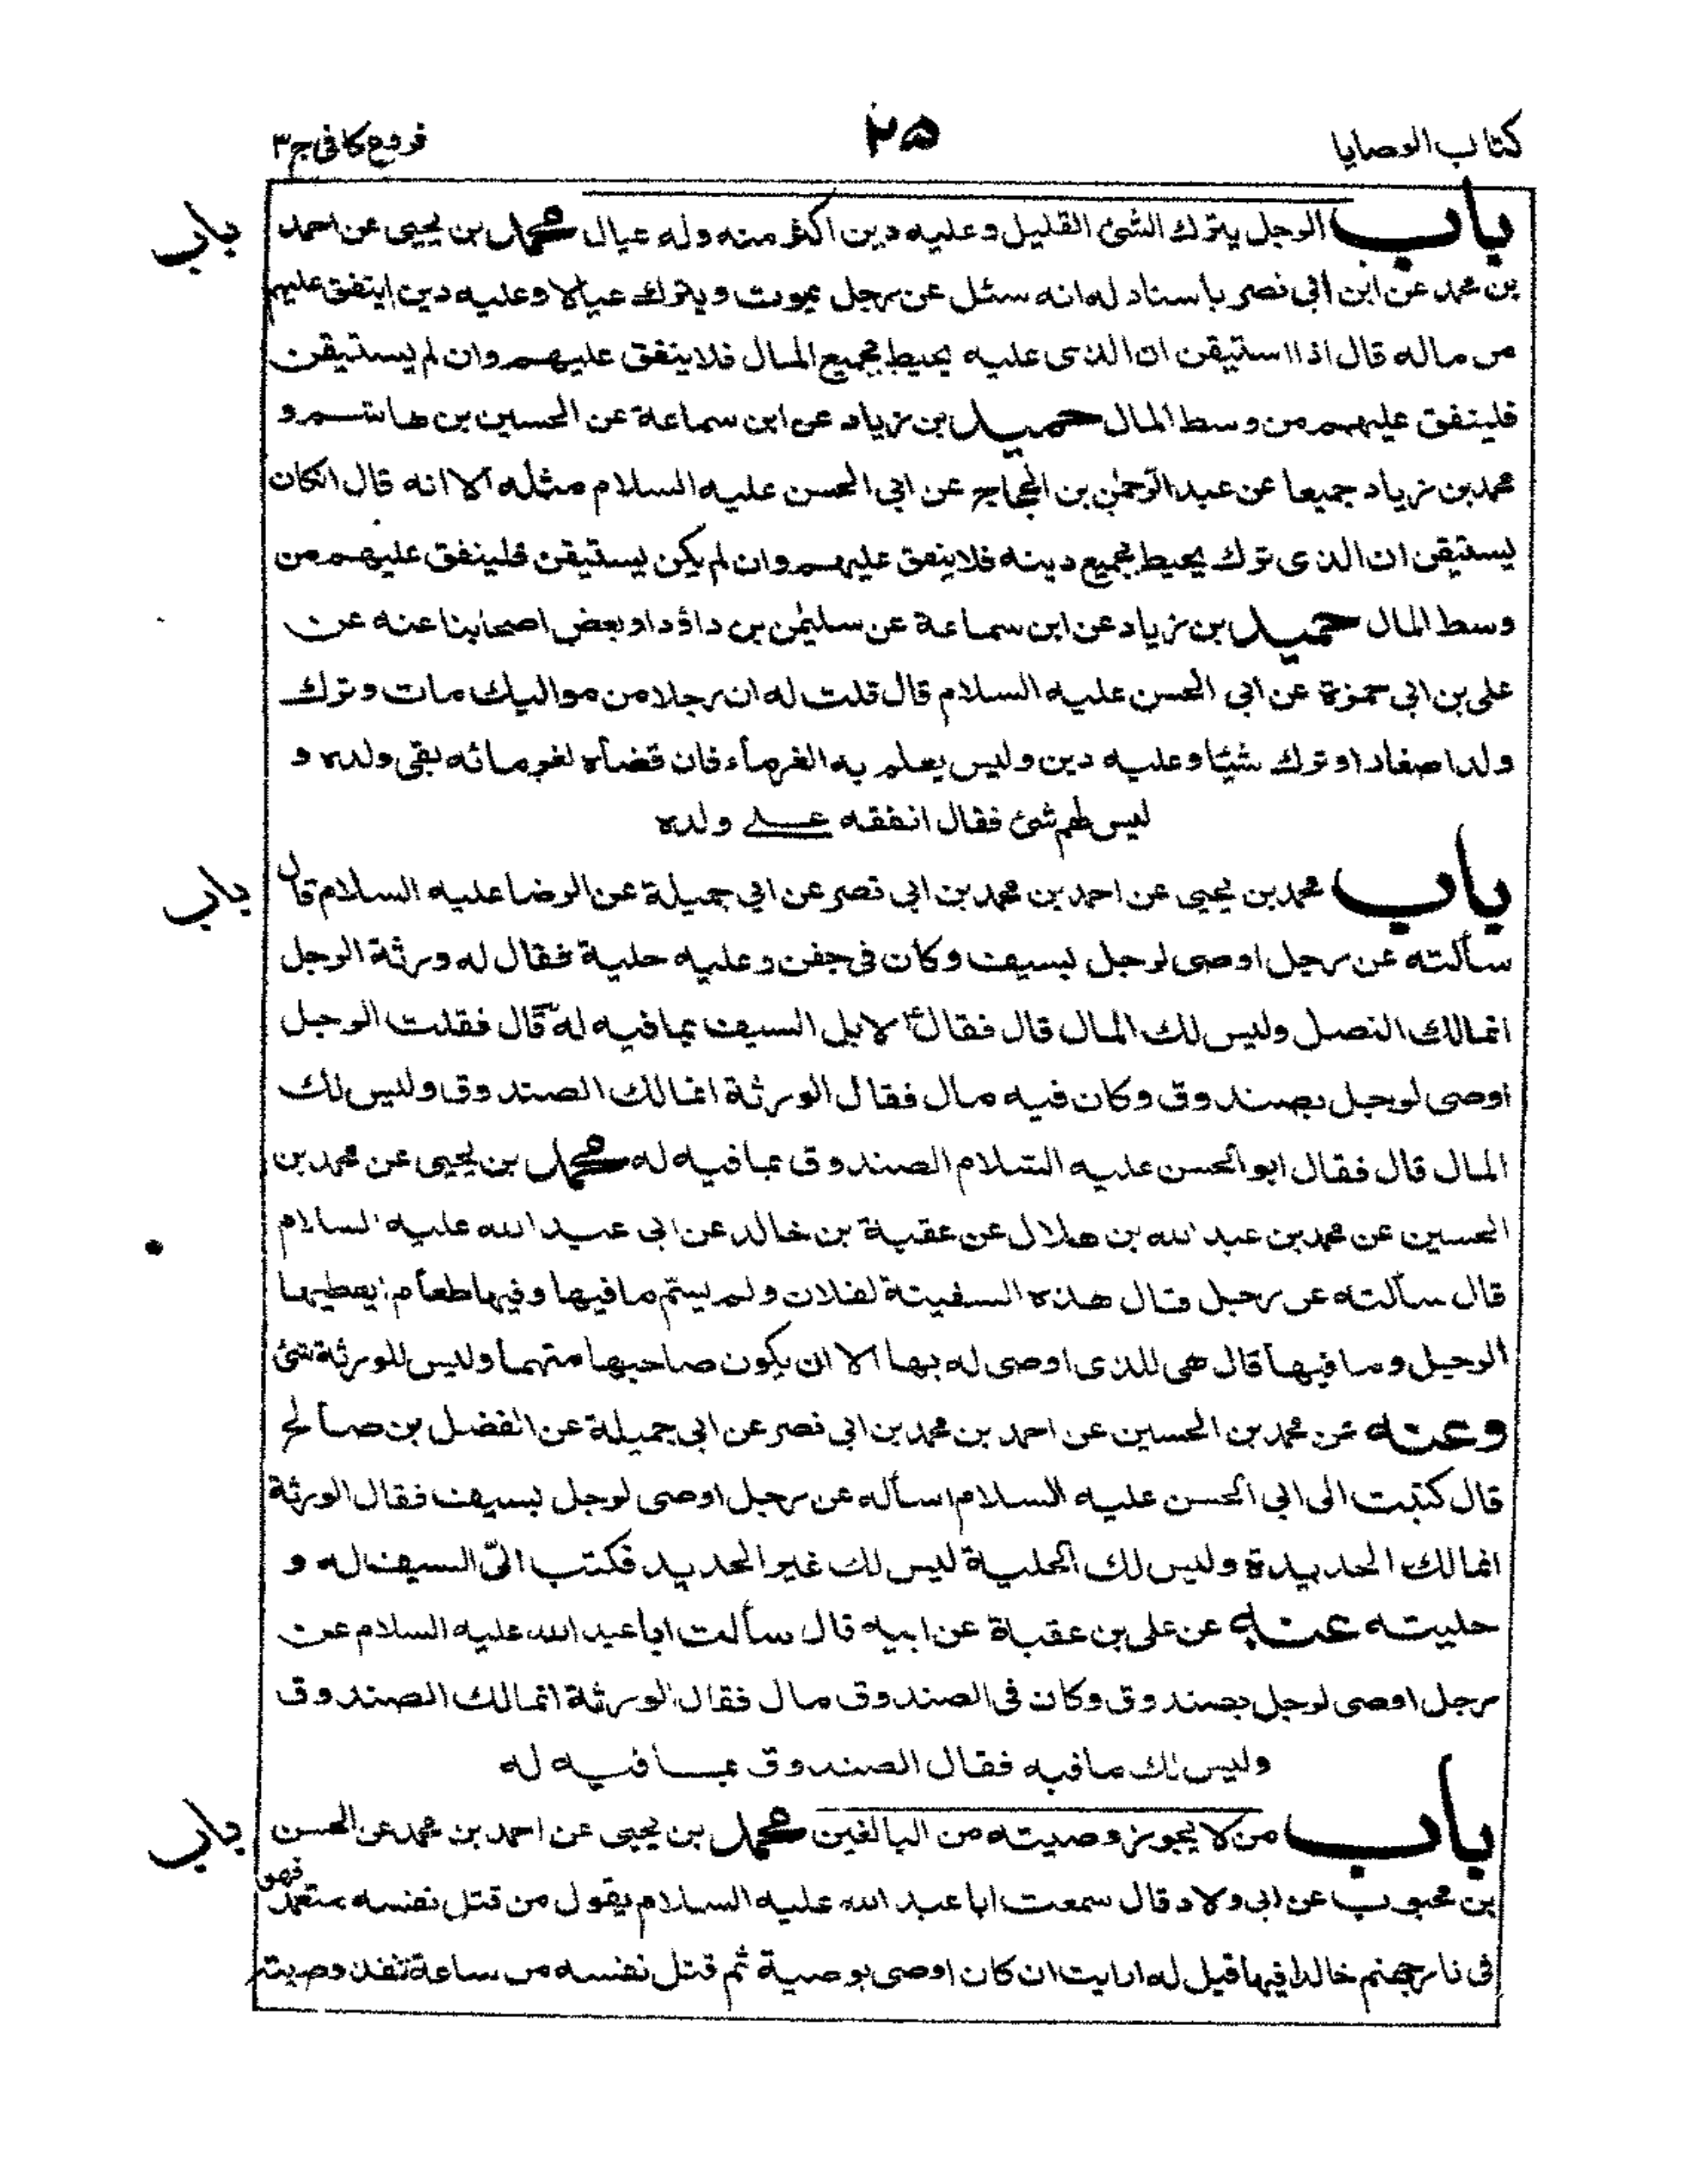 كتاب الوصايا
٢٥
فروع كافى ج٣
باب الرجل يترك الشئ القليل وعليه دين اكثر منه وله عيال محمد بن يحيى عن احمد
باب
بن محمد عن ابن ابى نصر باسناد له انه سئل عن رجل يموت ويترك عيالا وعليه دين اينفق عليهم
من ماله قال اذا استيقن ان الذى عليه يحيط بجميع المال فلا ينفق عليهم وان لم يستيقن
فلينفق عليهم من وسط المال حميد بن زياد عن ابن سماعة عن الحسين بن هاشم و
محمد بن زياد جميعا عن عبد الرحمٰن بن الحجاج عن ابى الحسن عليه السلام مثله الا انه قال انكان
يستيقن ان الذى ترك يحيط بجميع دينه فلا ينفق عليهم وان لم يكن يستيقن فلينفق عليهم من
وسط المال حميد بن زياد عن ابن سماعة عن سليمٰن بن داؤد او بعض اصحابنا عنه عن
على بن ابى حمزة عن ابى الحسن عليه السلام قال قلت له ان رجلا من مواليك مات وترك
ولدا صغارا وترك شيئا وعليه دين وليس يعلم به الغرماء فان قضاه لغرمائه بقى ولده و
ليس لهم شئ فقال انفقه على ولده
باب محمد بن يحيى عن احمد بن محمد بن ابى نصر عن ابى جميلة عن الرضا عليه السلام قال
باب
سألته عن رجل اوصى لرجل بسيف وكان فى جفن وعليه حلية فقال له ورثة الرجل
انما لك النصل وليس لك المال قال فقال لا بل السيف بما فيه له قال فقلت الرجل
اوصى لرجل بصندوق وكان فيه مال فقال الورثة انما لك الصندوق وليس لك
المال قال فقال ابو الحسن عليه السلام الصندوق بما فيه له محمد بن يحيى عن محمد بن
الحسين عن محمد بن عبد الله بن هلال عن عقبة بن خالد عن ابى عبد الله عليه السلام
قال سألته عن رجل قال هذه السفينة لفلان ولم يسم ما فيها وفيها طعام ايعطيها
الرجل وما فيها قال هى للذى اوصى له بها الا ان يكون صاحبها متهما وليس للورثة شئ
وعنه عن محمد بن الحسين عن احمد بن محمد بن ابى نصر عن ابى جميلة عن المفضل بن صالح
قال كتبت الى ابى الحسن عليه السلام اسأله عن رجل اوصى لرجل بسيف فقال الورثة
انما لك الحديدة وليس لك الحلية ليس لك غير الحديد فكتب الىّ السيف له و
حليته عنه عن على بن عقبة عن ابيه قال سألت ابا عبد الله عليه السلام عن
رجل اوصى لرجل بصندوق وكان فى الصندوق مال فقال الورثة انما لك الصندوق
وليس لك ما فيه فقال الصندوق بما فيه له
باب من لا يجوز وصيته من البالغين محمد بن يحيى عن احمد بن محمد عن الحسن
باب
بن محبوب عن ابى ولاد قال سمعت ابا عبد الله عليه السلام يقول من قتل نفسه متعمدا فهو
فى نار جهنم خالدا فيها قيل له ارايت ان كان اوصى بوصية ثم قتل نفسه من ساعة تنفذ وصيته